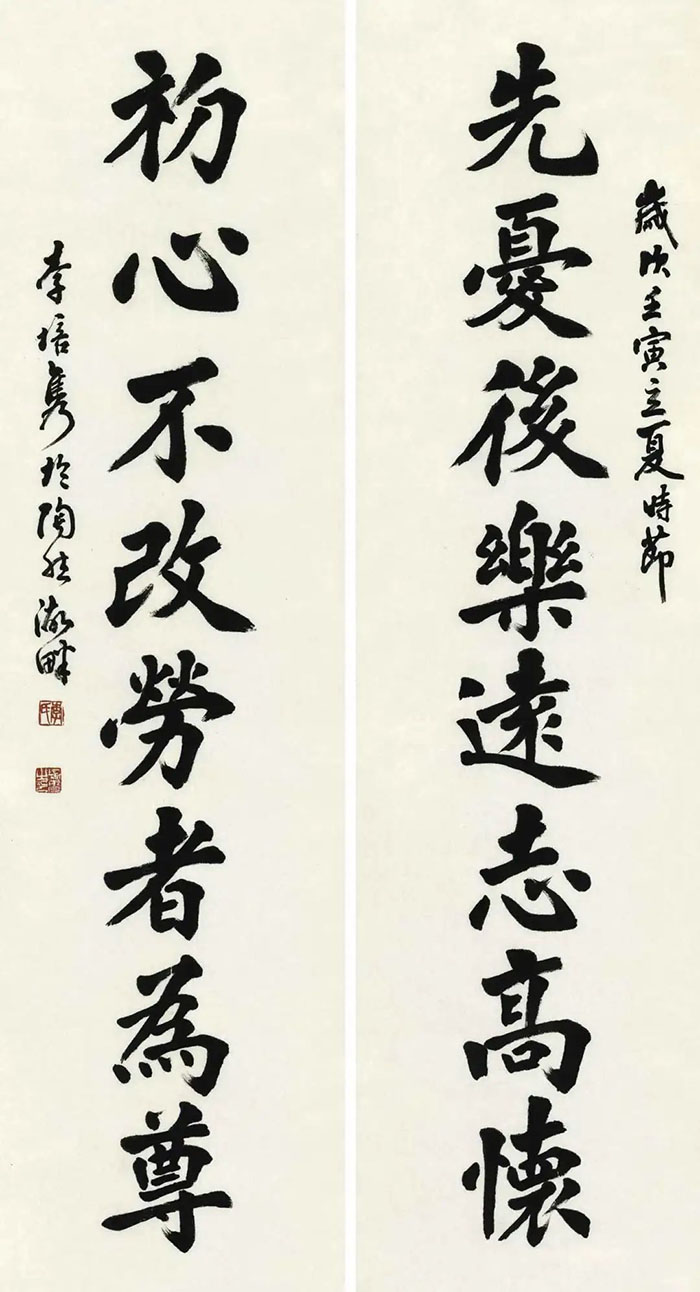 歲次壬寅立夏時節
先憂後樂遠志高懷
初心不改勞者為尊
李培隽於陶然湖畔